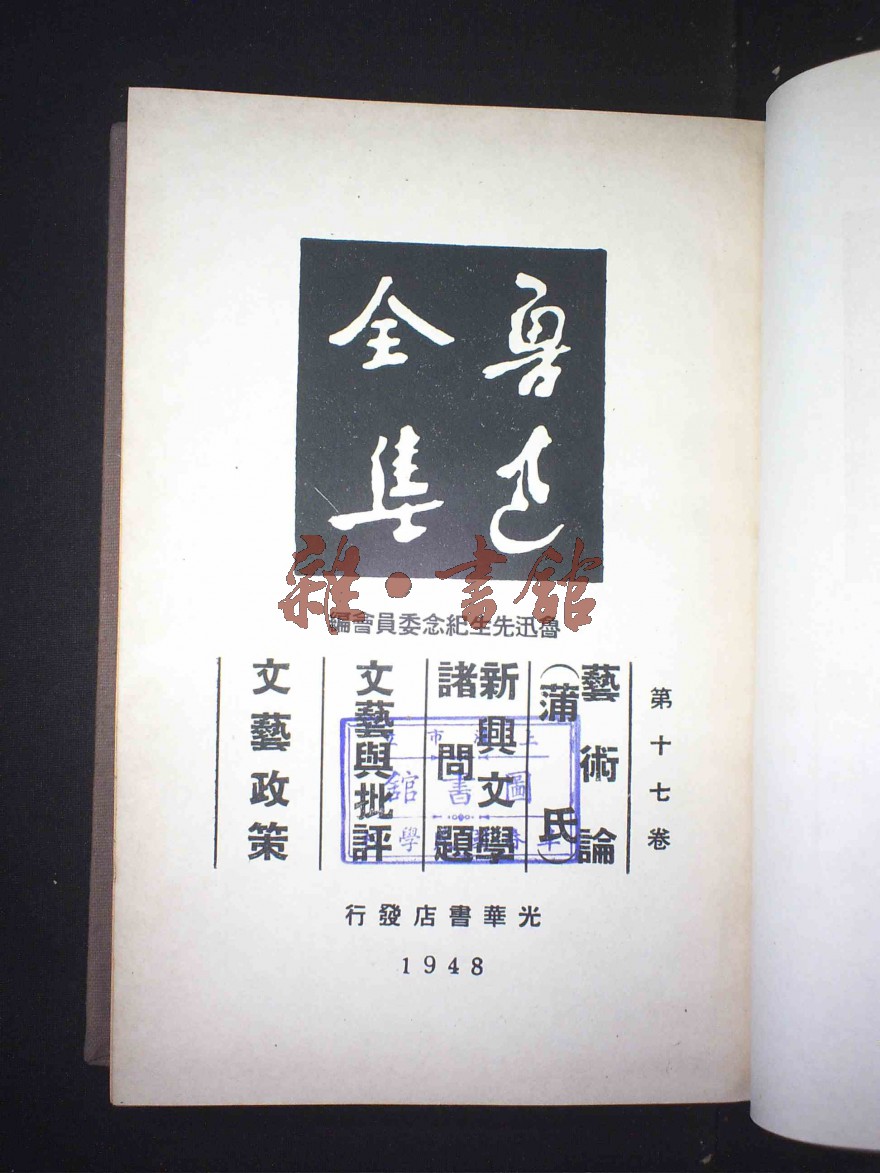 魯迅
全集
雜·書館
魯迅先生紀念委員會編
第十七卷
藝術論
(蒲氏)
新興文學
諸問題
文藝與批評
文藝政策
市
圖書館
學
光華書店發行
1948